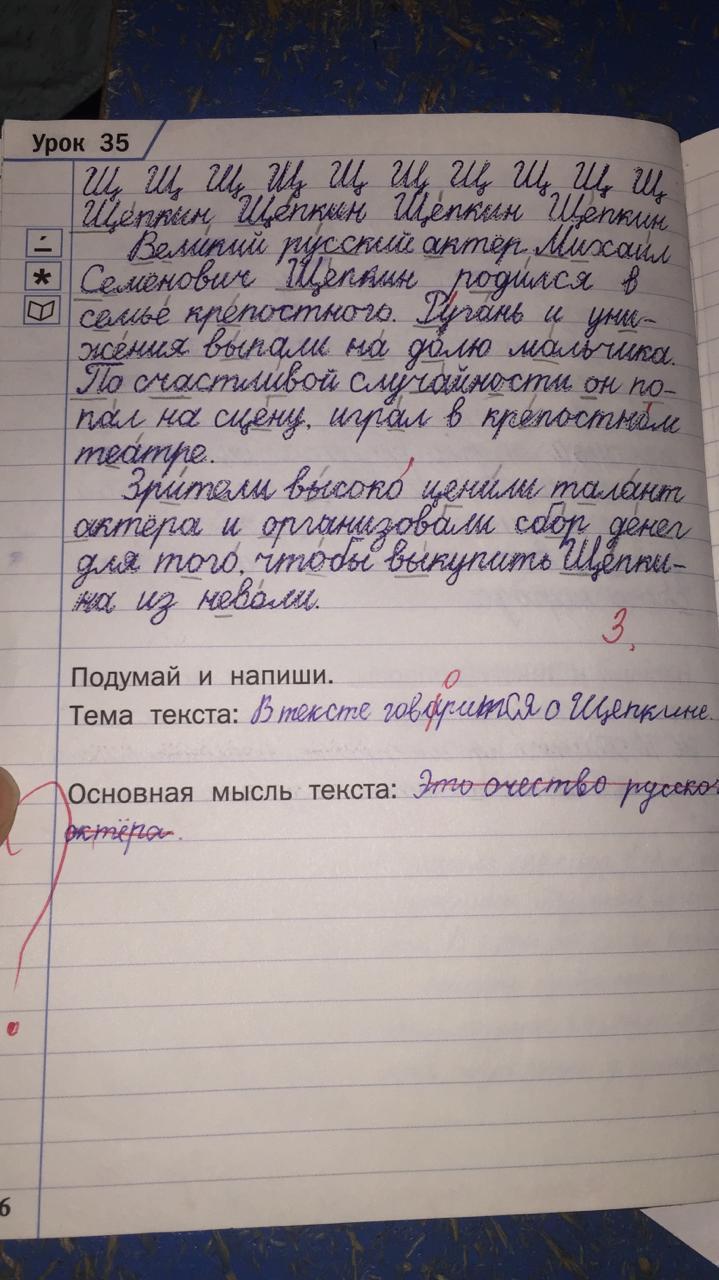 Урок 35
Щ Щ Щ Щ Щ Щ Щ Щ Щ Щ
Щепкин Щепкин Щепкин Щепкин
Великий русский актёр Михаил
Семёнович Щепкин родился в
семье крепостного. Ругань и уни-
жения выпали на долю мальчика.
По счастливой случайности он по-
пал на сцену, играл в крепостном
театре.
Зрители высоко ценили талант
актёра и организовали сбор денег
для того, чтобы выкупить Щепки-
на из неволи.
3.
Подумай и напиши.
о
Тема текста: В тексте говорится о Щепкине.
Основная мысль текста: Это очество русског
октёра.
6